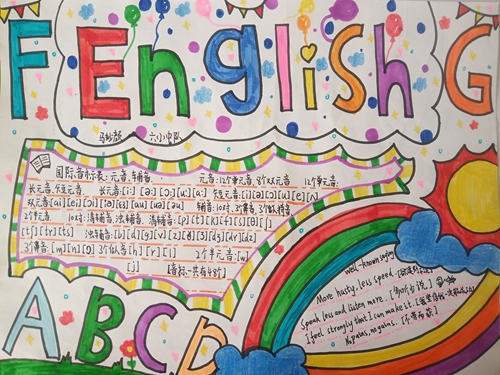 F English G
六(1)中队
国际音标表:元音,辅音. 元音:12个单元音,8个双元音 12个单元音:
长元音,短元音 长元音:[i:] [ə:] [ɔ:] [u:] [ɑ:] 短元音:[i] [ə] [ɔ] [u] [e] [ʌ]
双元音:[ai] [ei] [ɔi] [iə] [εə] [au] [uə] [əu] 辅音:10对,3个鼻音,3个似拼音
2个单元音 10对:清辅音,浊辅音. 清辅音:[p] [t] [k] [f] [s] [θ] [ʃ]
[tʃ] [tr] [ts] 浊辅音:[b] [d] [g] [v] [z] [ð] [ʒ] [dʒ] [dr] [dz]
3个鼻音:[m] [n] [ŋ] 3个似音[h] [r] [l] 2个半元音:[w]
[j] [音标一共有48个]
ABCD
well-known saying
More hasty, less speed.
Speak less and listen more.
I feel strongly that I can make it.
No pains, no gains.